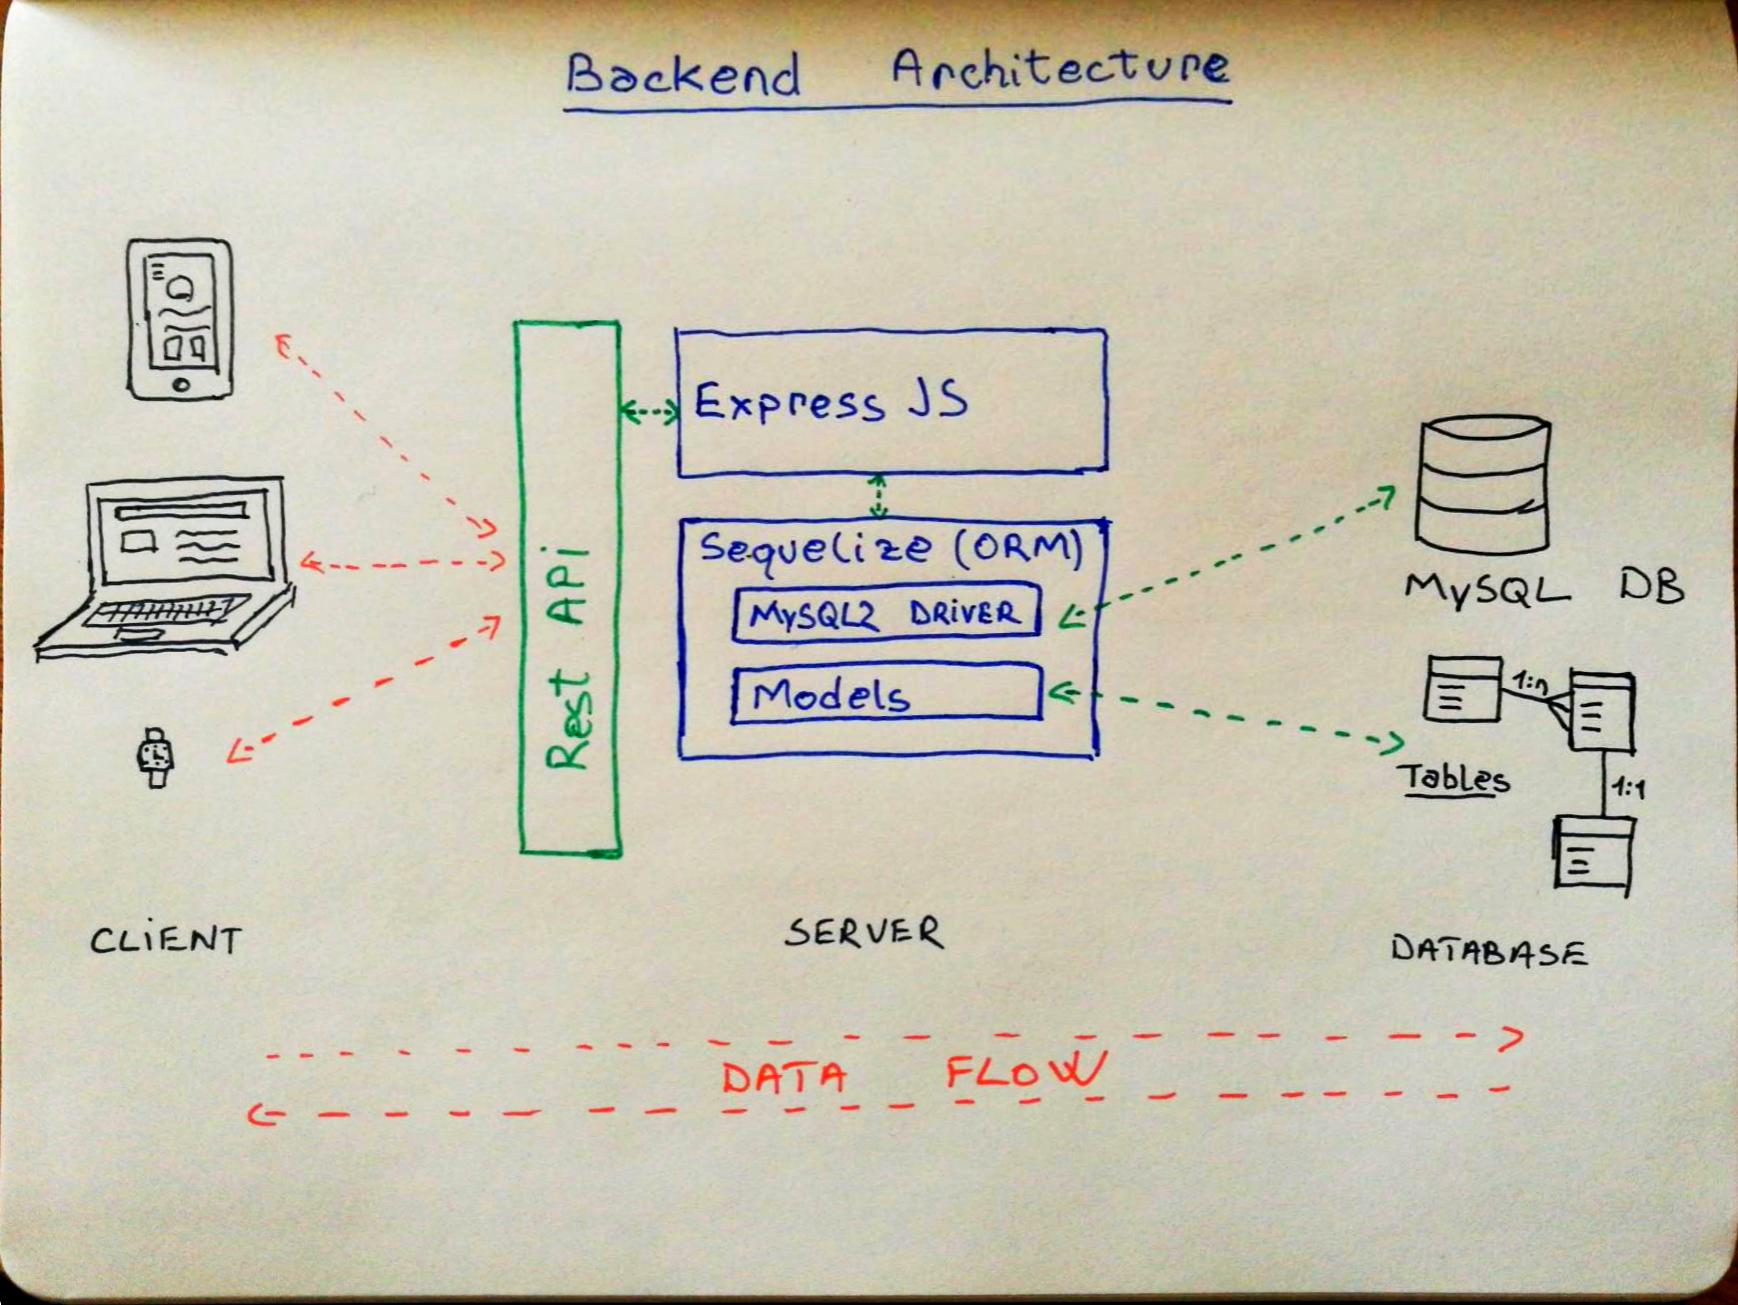 Backend Architecture
Express JS
Sequelize (ORM)
MySQL2 DRiVER
Models
Rest APi
MySQL DB
1:n
Tables
1:1
CLiENT
SERVER
DATABASE
DATA FLOW